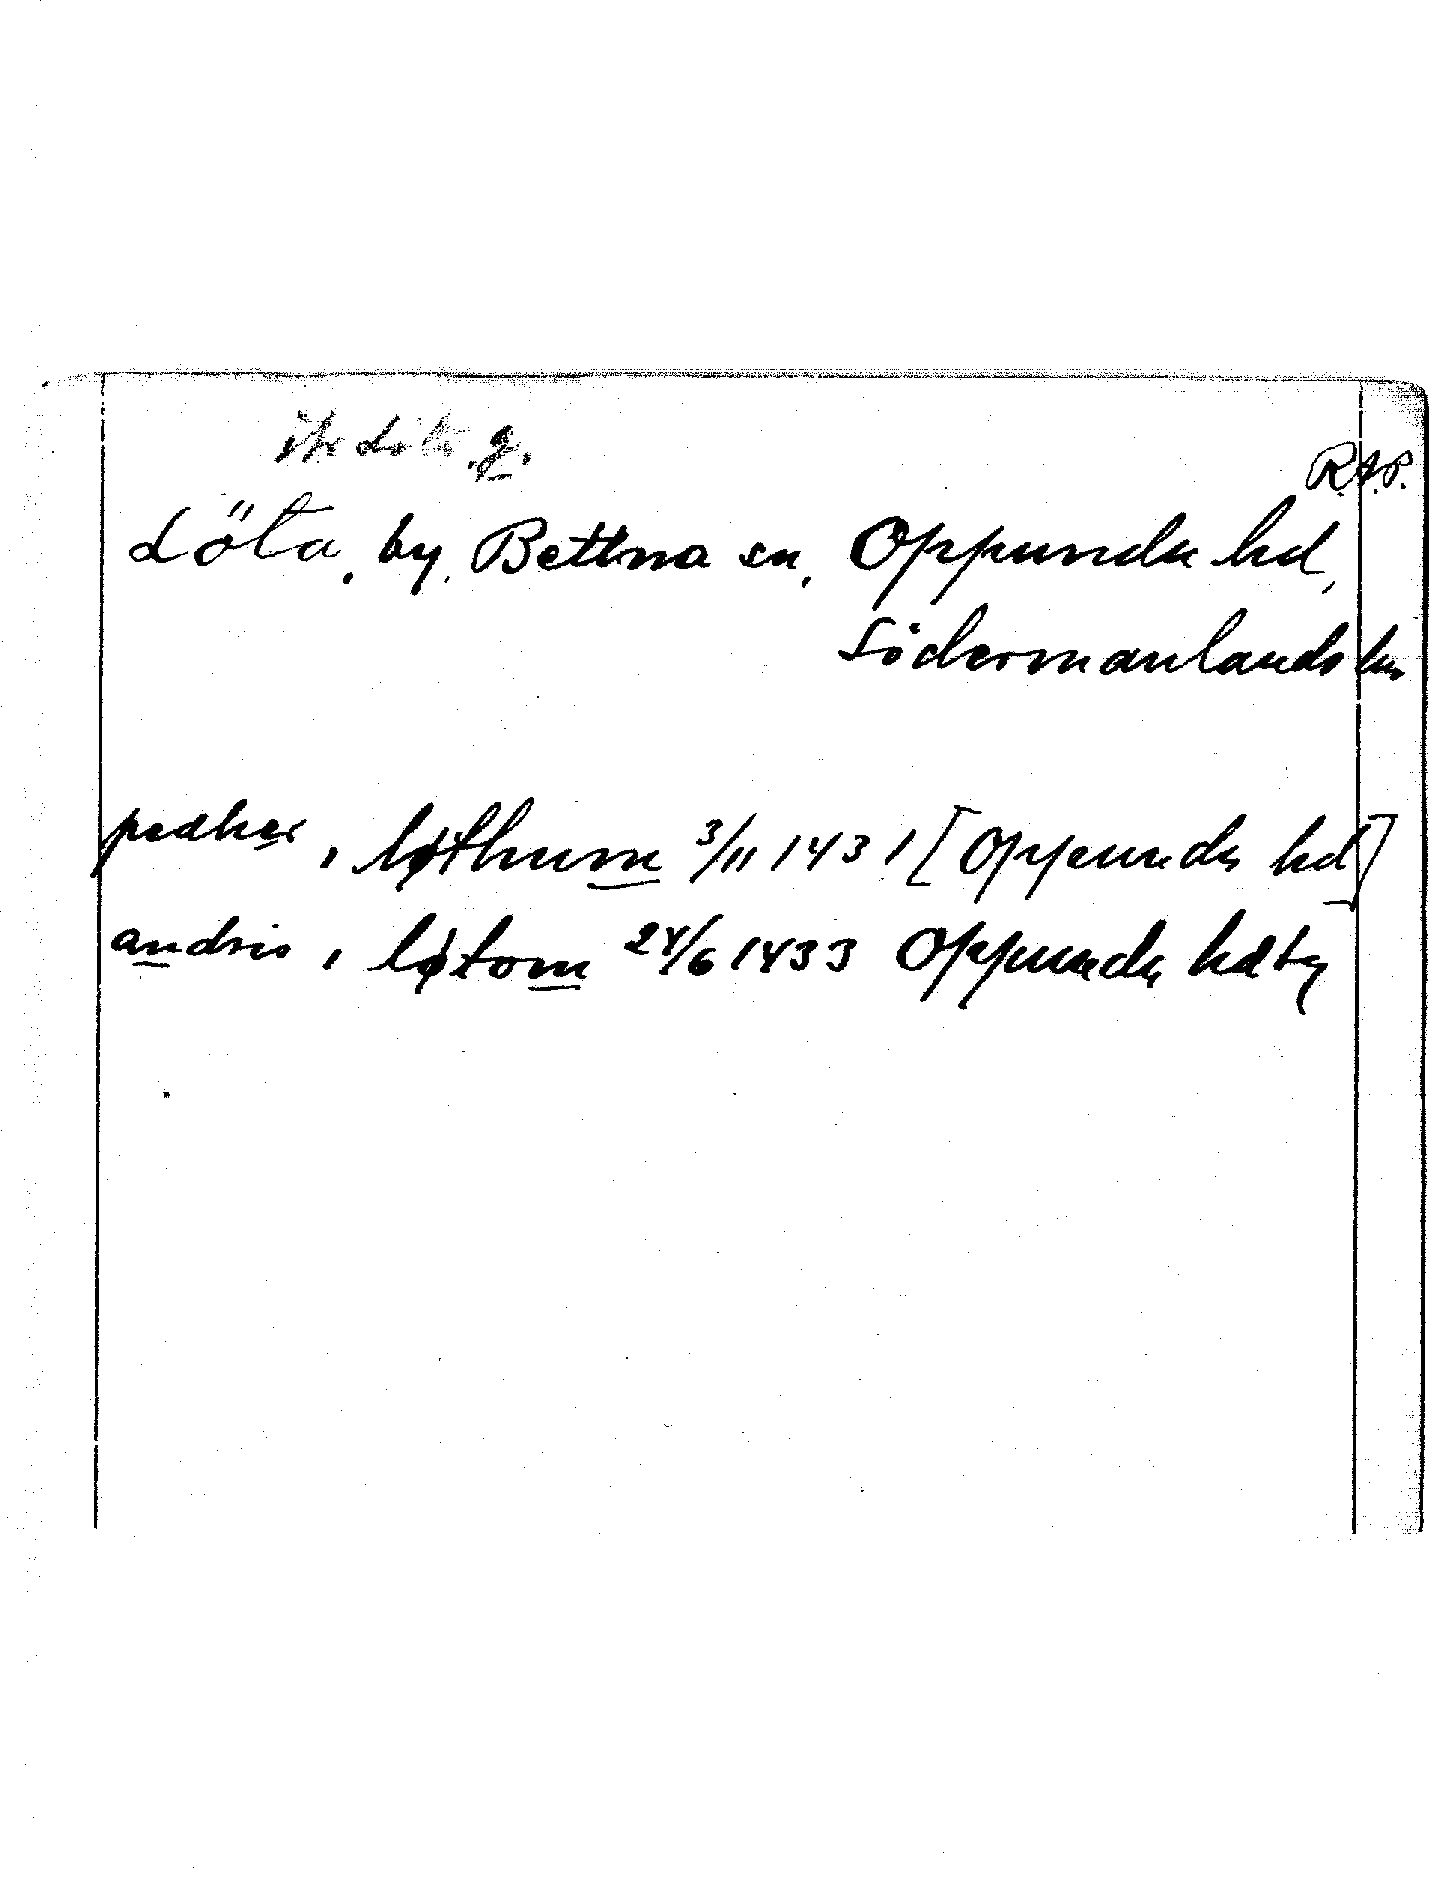 Löta g.
R.A.P.
Löta, by, Bettna sn, Oppunda hd,
Södermanlands län
pedher i løthum 3/11 1431 [Oppunda hd]
andris i løtom 24/6 1433 Oppunda hdtg